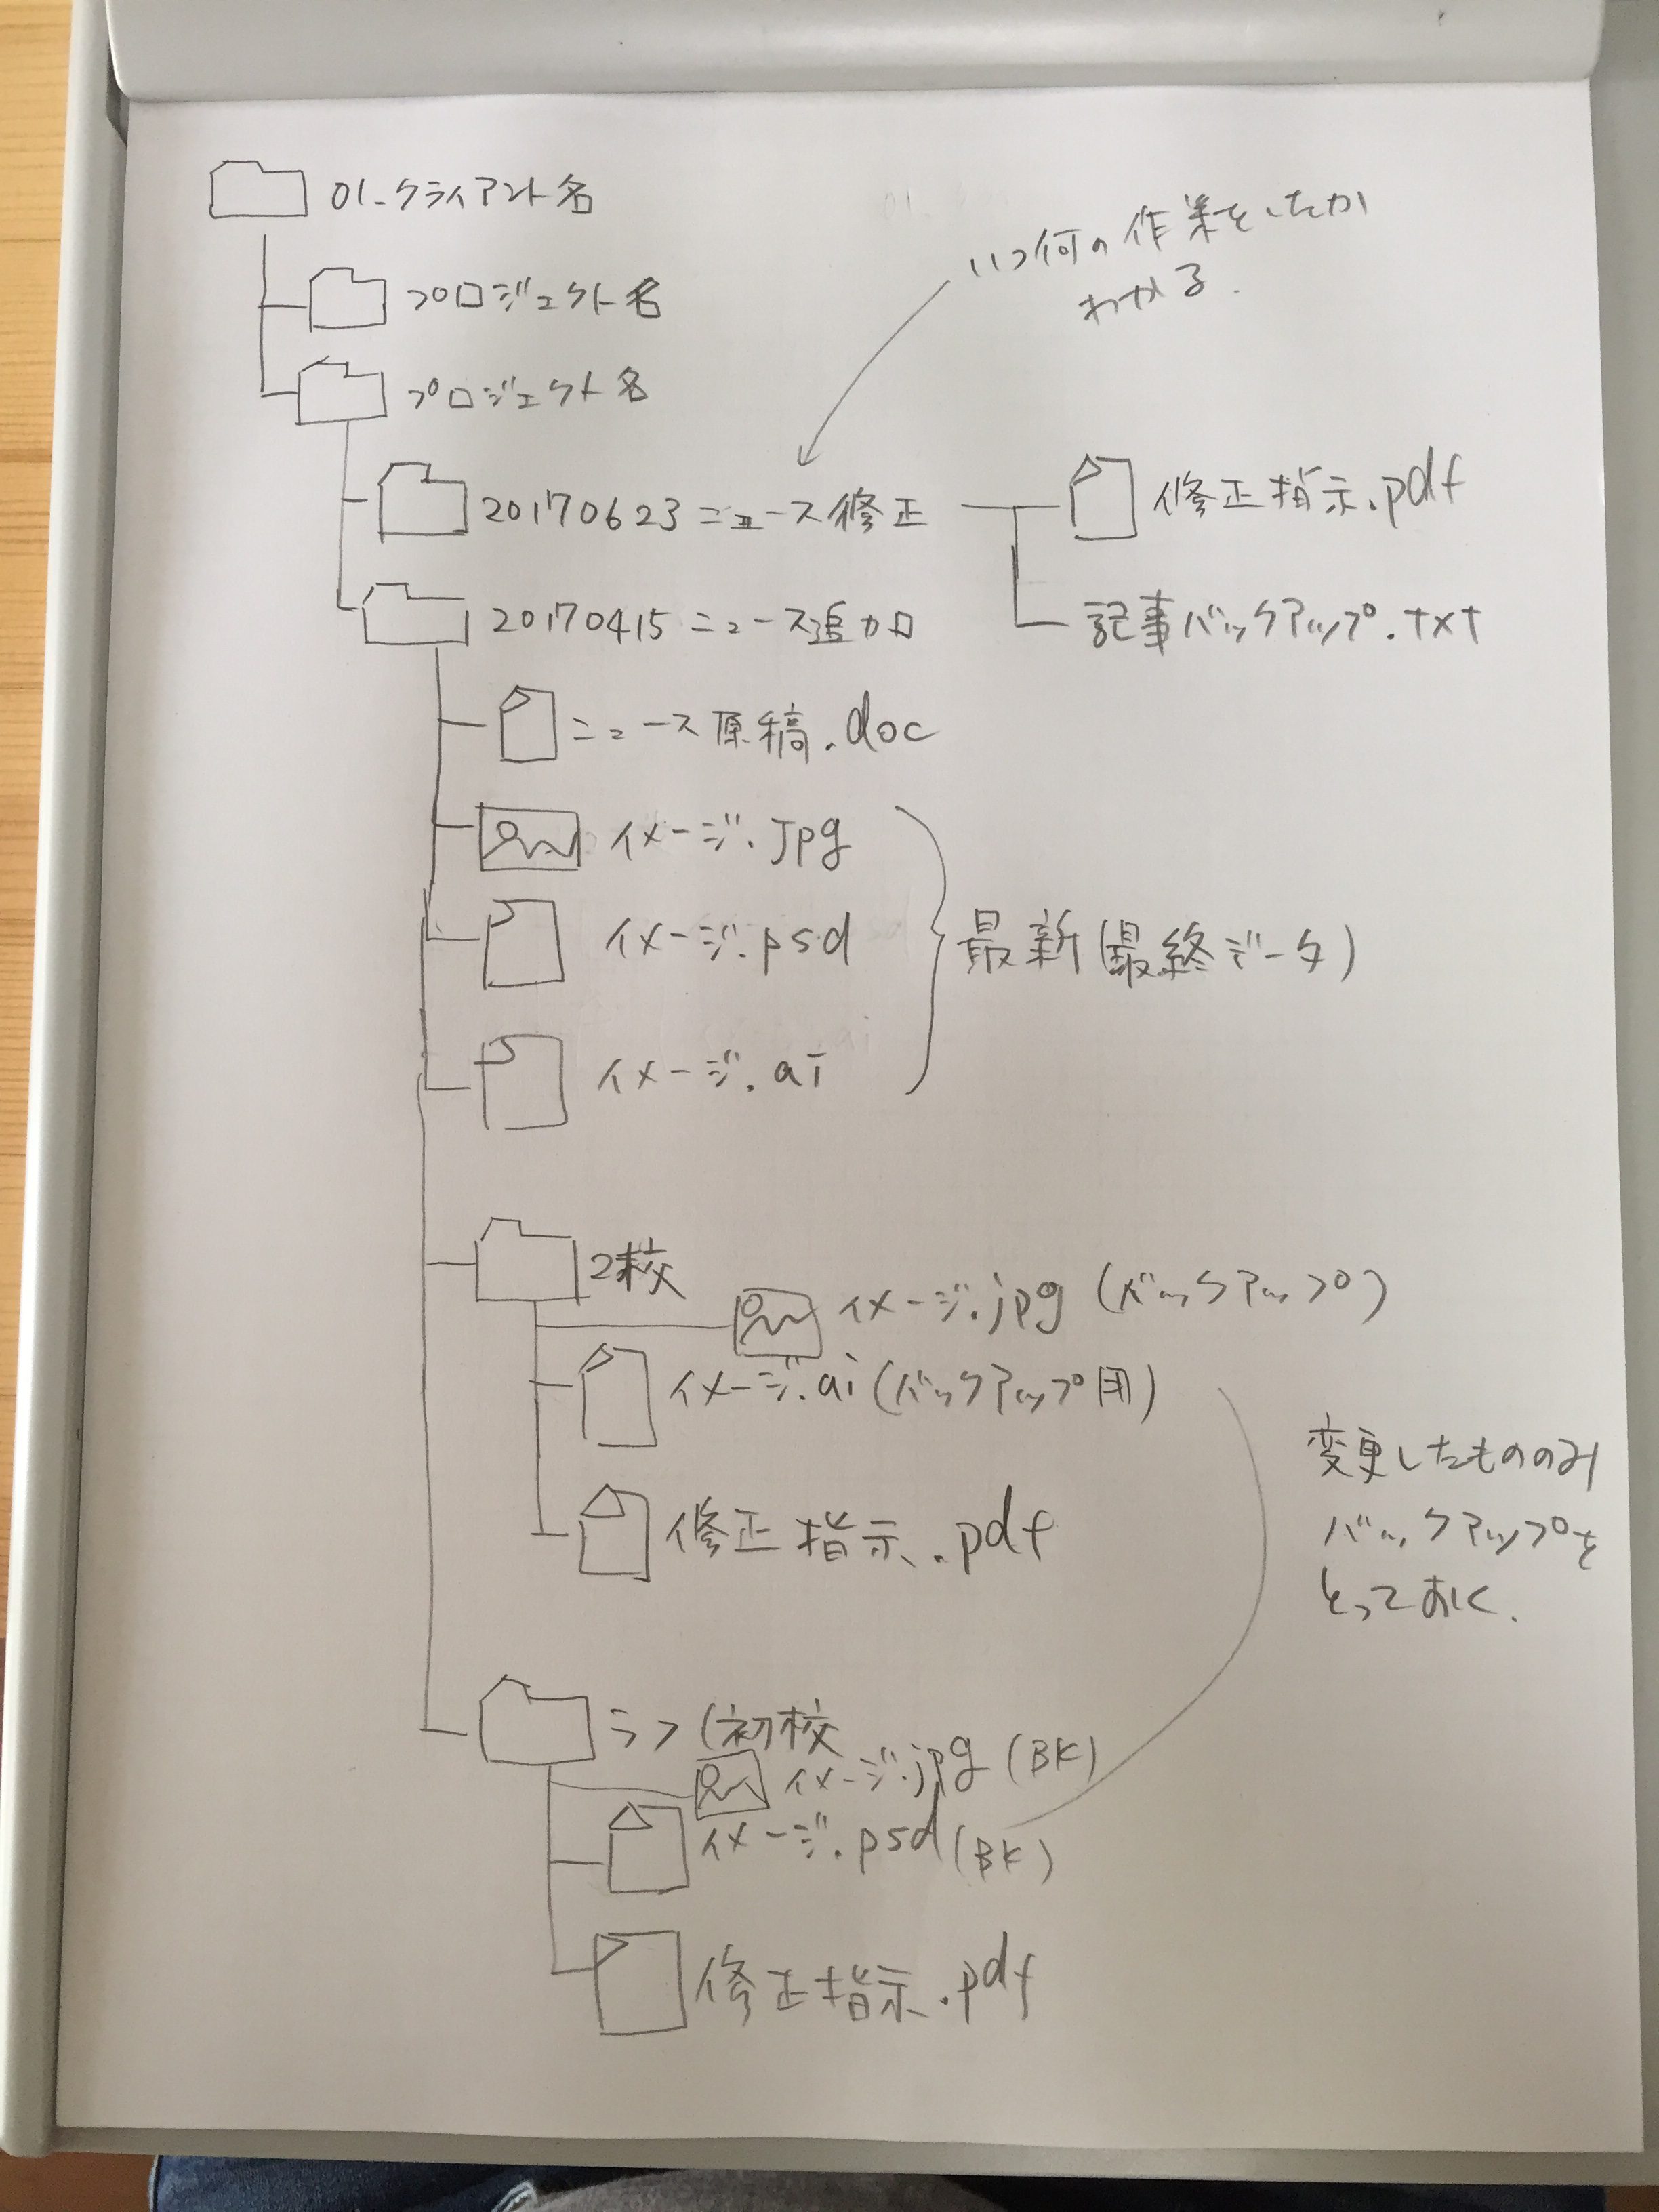 01_クライアント名
プロジェクト名
プロジェクト名
いつ何の作業をしたか
わかる.
20170623ニュース修正
修正指示.pdf
記事バックアップ.txt
20170415ニュース追加
ニュース原稿.doc
イメージ.jpg
イメージ.psd
イメージ.ai
最新(最終データ)
2校
イメージ.jpg(バックアップ)
イメージ.ai(バックアップ用)
修正指示.pdf
変更したもののみ
バックアップを
とっておく.
ラフ(初校
イメージ.jpg(BK)
イメージ.psd(BK)
修正指示.pdf